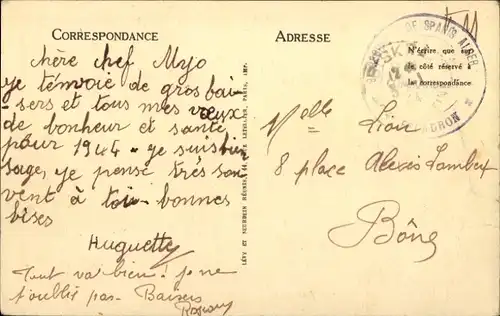 CORRESPONDANCE
chère chef Myo
je t'envoie de gros bai-
sers et tous mes vœux
de bonheur et santé
pour 1944 - je suis bien
sage, je pense très sou
vent à toi - bonnes
bises
Huguette
Tout va bien! je ne
t'oublie pas - Baisers
LÉVY ET NEURDEIN RÉUNIS, 44, RUE LETELLIER, PARIS, IMP.
ADRESSE
N'écrire que sur
le côté réservé à
la correspondance
OF SPAHIS ALGER
BISKRA
ESCADRON
Melle
8 place Alexis Lambert
Bône